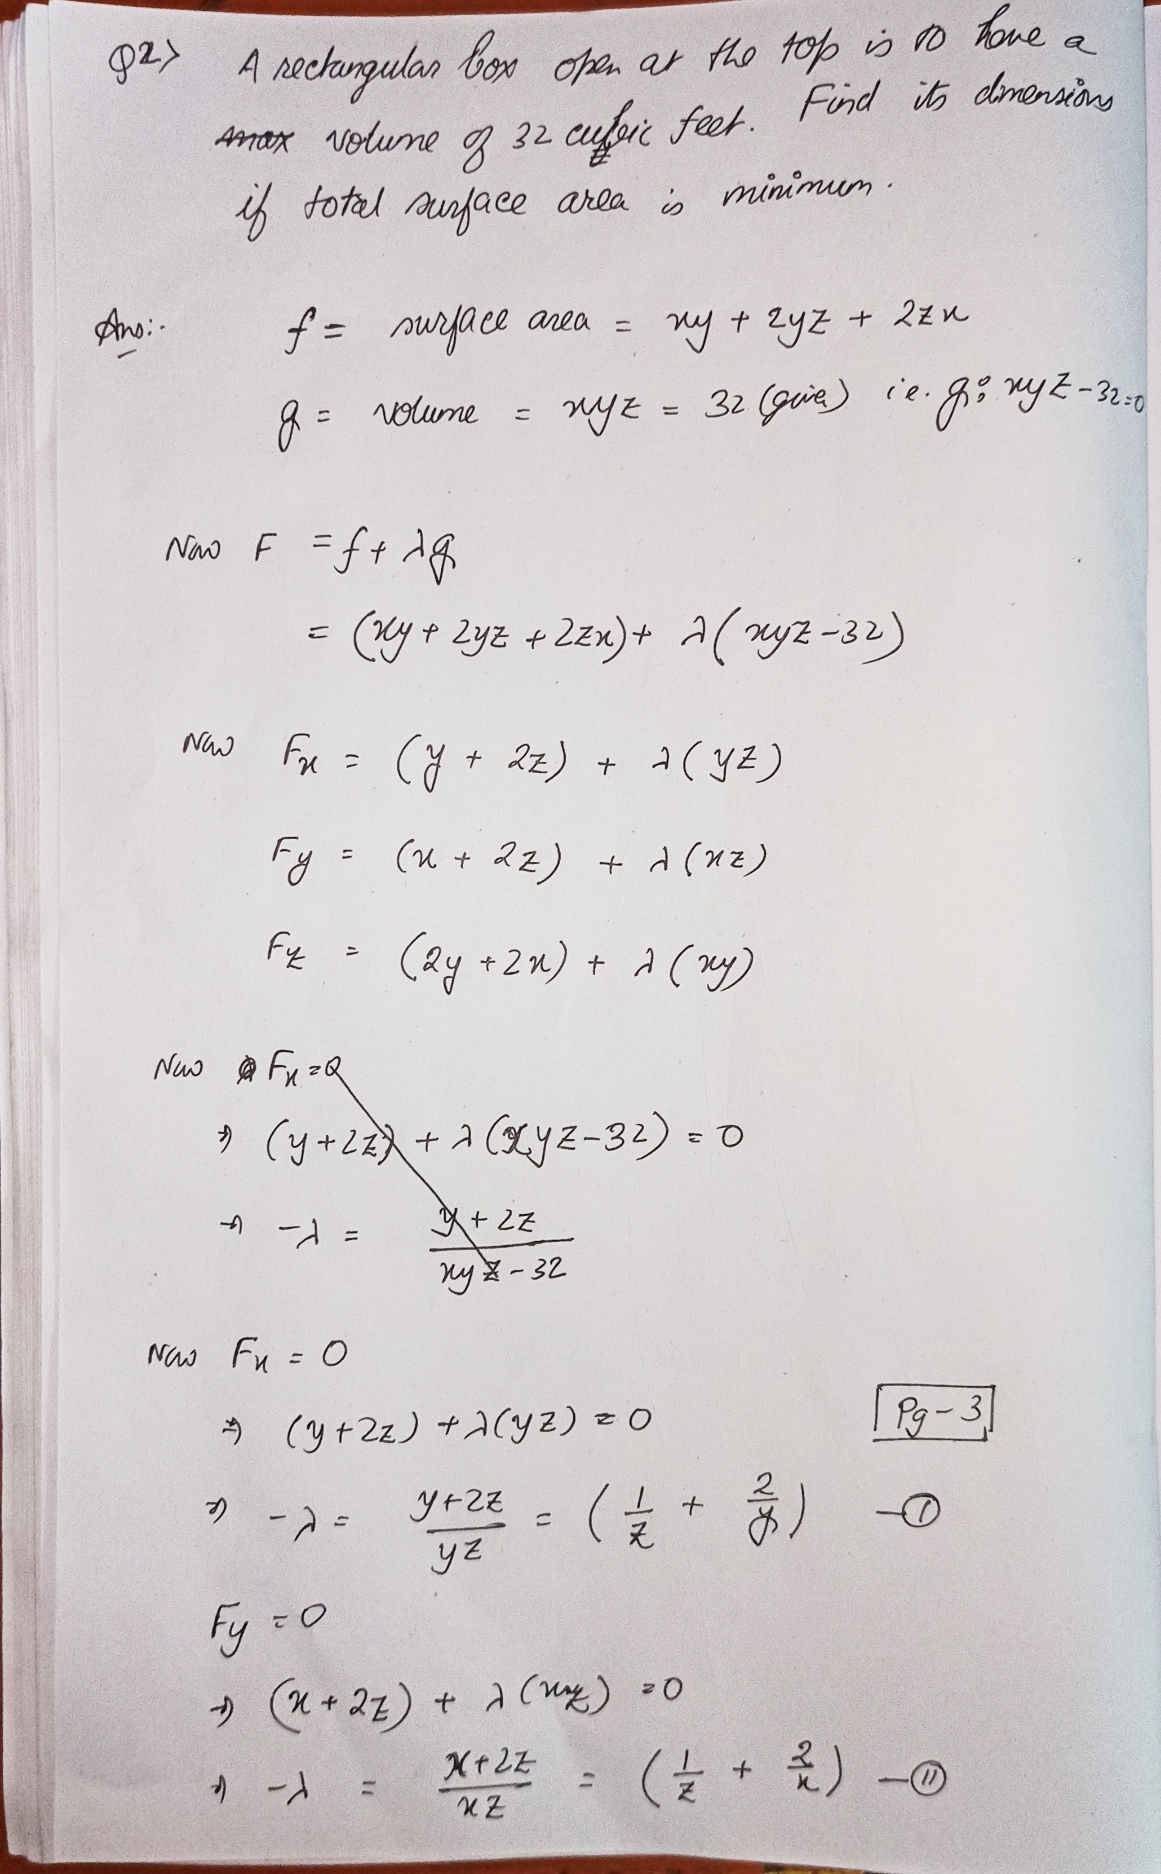 Q2> A rectangular box open at the top is to have a
max volume of 32 cubic feet. Find its dimensions
if total surface area is minimum.
Ans:- f = surface area = xy + 2yz + 2zx
g = volume = xyz = 32 (give) i.e. g: xyz-32=0
Now F = f + λg
= (xy + 2yz + 2zx) + λ(xyz-32)
Now Fx = (y + 2z) + λ(yz)
Fy = (x + 2z) + λ(xz)
Fz = (2y + 2x) + λ(xy)
Now Fx = 0
⇒ (y+2z) + λ(xyz-32) = 0
⇒ -λ = y+2z / xyz-32
Now Fx = 0
⇒ (y+2z) + λ(yz) = 0
Pg-3
⇒ -λ = y+2z / yz = (1/z + 2/y) -①
Fy = 0
⇒ (x+2z) + λ(xz) = 0
⇒ -λ = x+2z / xz = (1/z + 2/x) -⑪